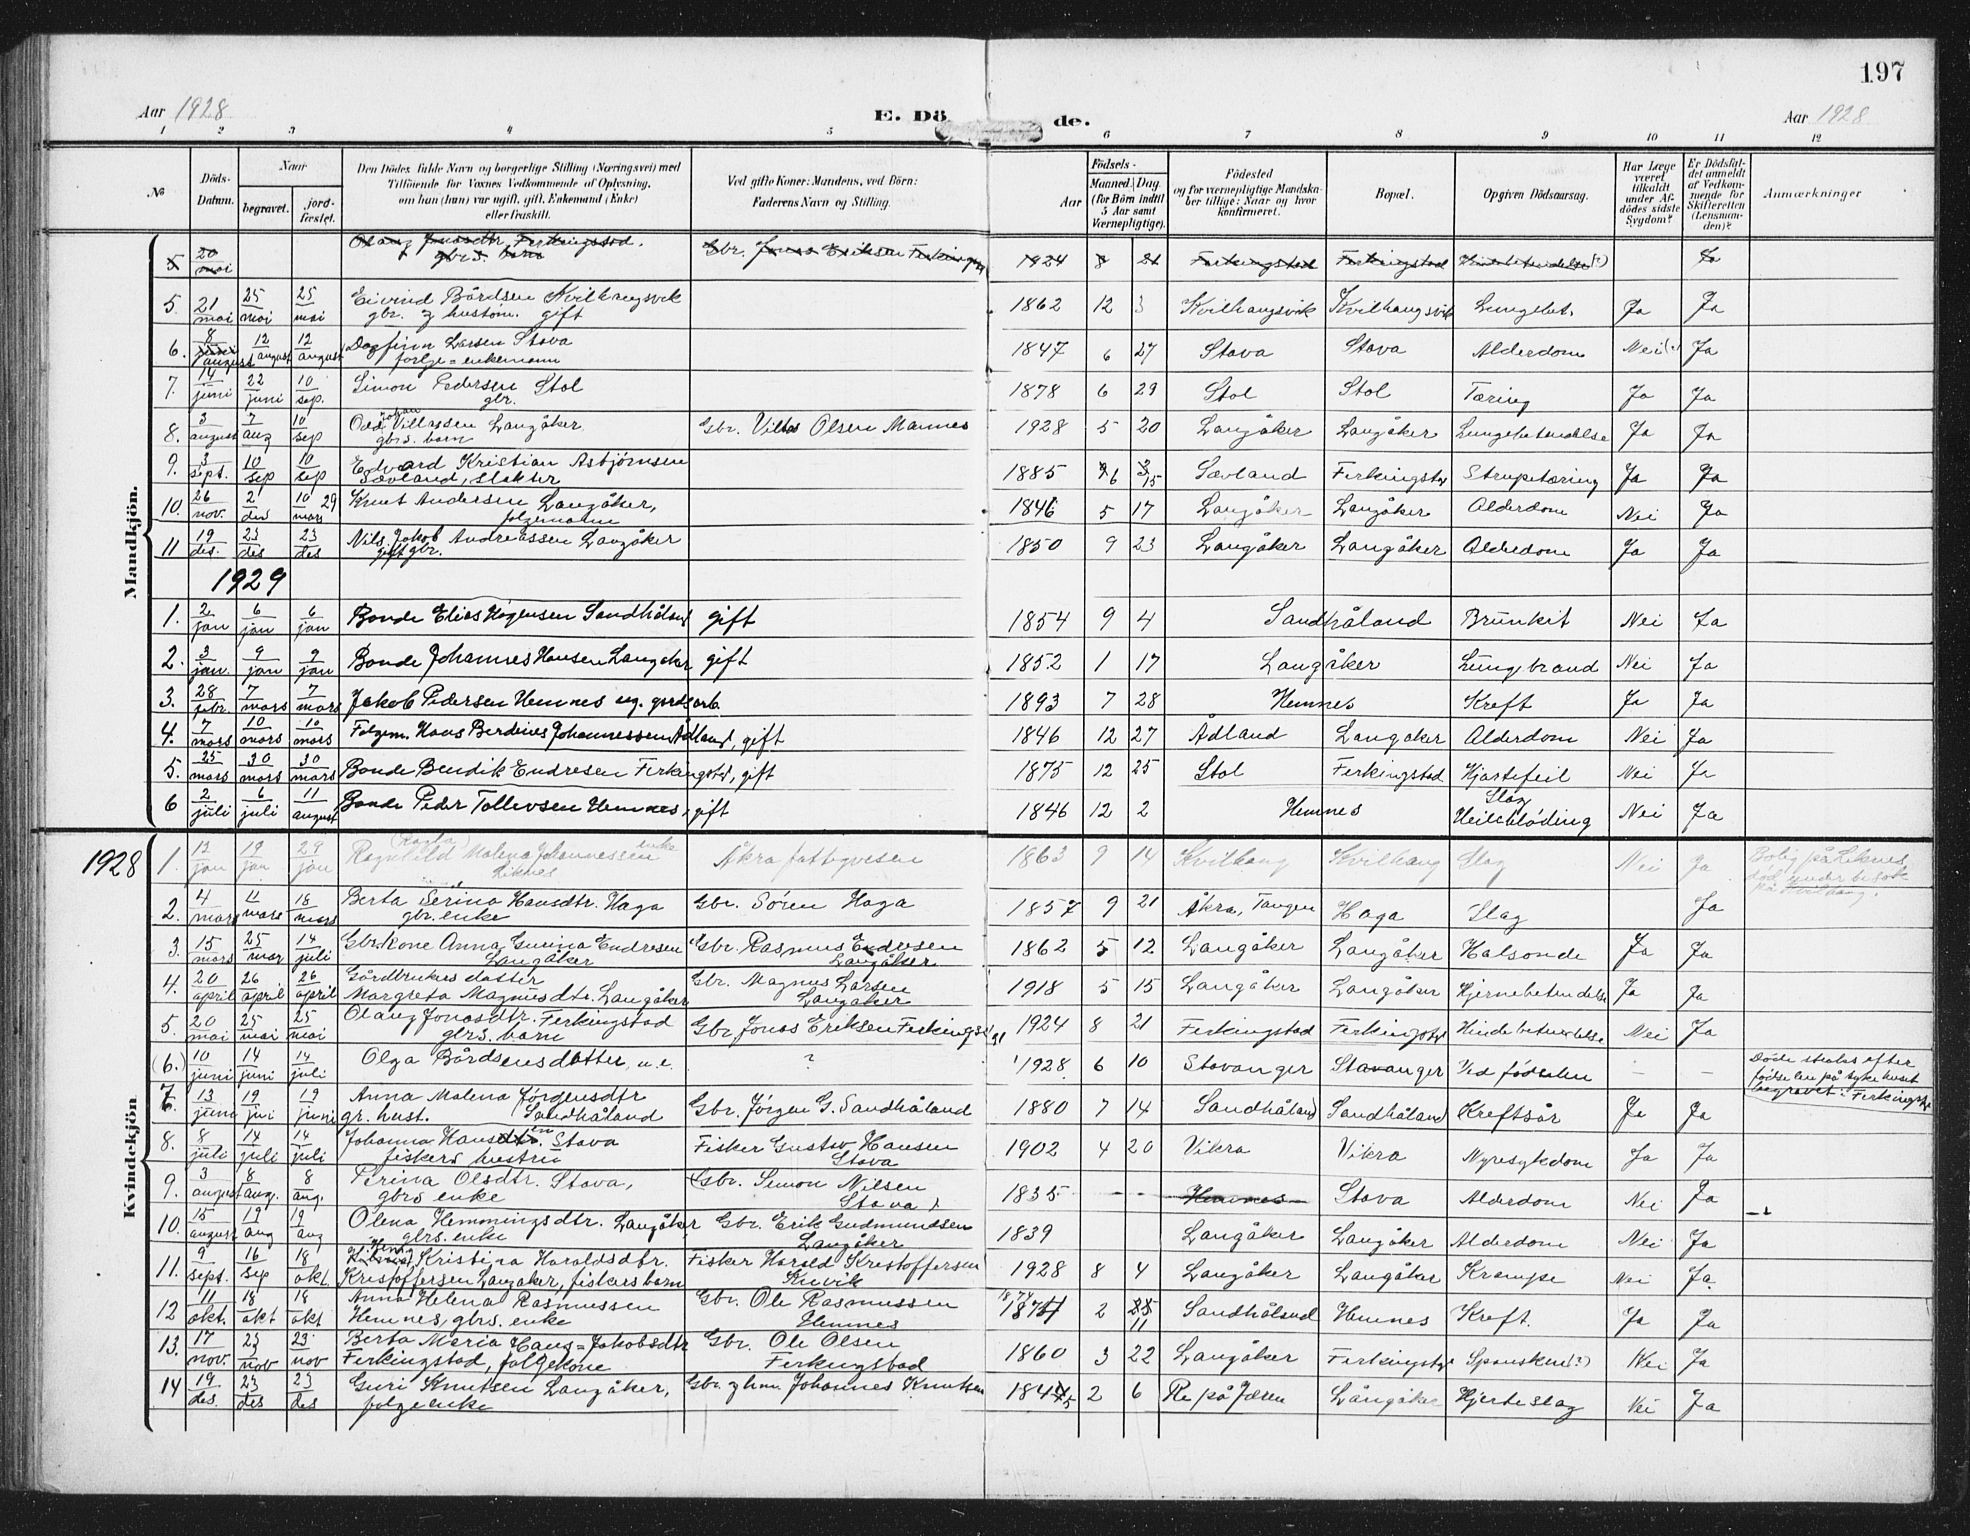 197
Aar 1928 E. Dö de. Aar 1928
1 2 3 4 5 6 7 8 9 10 11 12
No
Döds-Datum.
Naar
begravet.
jord-fæstet.
Den Dödes fulde Navn og borgerlige Stilling (Næringsvei) med
Tilföiende for Voxnes Vedkommende af Oplysning,
om han (hun) var ugift, gift, Enkemand (Enke)
eller fraskilt.
Ved gifte Koner: Mandens, ved Börn:
Faderens Navn og Stilling.
Födsels-
Aar
Maaned. Dag
(for Börn indtil
5 Aar samt
Værnepligtige).
Födested
og for værnepligtige Mandska-
ber tillige: Naar og hvor
konfirmeret.
Bopæl.
Opgiven Dödsaarsag.
Har Læge
været
tilkaldt
under Af-
dödes sidste
Sygdom?
Er Dödsfal-
det anmeldt
af Vedkom-
mende for
Skifteretten
(Lensman-
den)?
Anmærkninger
Mandkjön.
5 20 mai Olaug Jonasdtr. Ferkingstad, gbrs. barn Gbr. Jonas Eriksen Ferkingstad 1924 8 21 Ferkingstad Ferkingstad Hindebetendelse(?) Ja
5. 21 mai 25 mai 25 mai Eivind Bårdsen Kvilhaugsvik gbr. g hustom. gift 1862 12 3 Kvilhaugsvik Kvilhaugsvik Lungebet. Ja Ja
6. 8 juni august 12 august 12 august Dagfinn Larsen Stava folge=enkemann 1847 6 27 Stava Stava Alderdom Nei(?) Ja
7. 14 juni 22 juni 10 sep. Simon Pedersen Stol gbr. 1878 6 29 Stol Stol Tæring Ja Ja
8. 3 august 7 aug 10 sep Odd Johan Villassen Langåker gbrs. barn Gbr. Villas Olsen Mannes 1928 5 20 Langåker Langåker Lungebetendelse Ja Ja
9. 3 sept. 10 sep 10 sep Edvard Kristian Asbjørnsen Sævland, slakter 1885 6 15 Sævland Ferkingstad Strupetæring Ja Ja
10. 26 nov. 2 des 10 mars 29 Knut Andersen Langåker, folgemann 1846 5 17 Langåker Langåker Alderdom Nei Ja
11 19 des. 23 des 23 des Nils Jakob Andreassen Langåker gift gbr. 1850 9 23 Langåker Langåker Alderdom Ja Ja
1929
1. 2 jan 6 jan 6 jan Bonde Elias Høgensen Sandhåland gift 1854 9 4 Sandhåland Brunkit Nei Ja
2. 3 jan. 9 jan 9 jan Bonde Johannes Hansen Langåker gift 1852 1 17 Langåker Lungebrand Nei Ja
3. 28 febr. 7 mars 7 mars Jakob Pedersen Hemnes ug. gardsarb. 1893 7 28 Hemnes Kreft Ja Ja
4. 7 mars 10 mars 10 mars Folgem. Hans Berdines Johannessen Ådland, gift 1846 12 27 Ådland Langåker Alderdom Nei Ja
5. 25 mars 30 mars 30 mars Bonde Bendik Endresen Ferkingstad, gift 1875 12 25 Stol Ferkingstad Hjartefeil Nei Ja
6 2 juli 6 juli 11 august Bonde Peder Tollevsen Hemnes, gift 1846 12 2 Hemnes Slag Heilebløding Nei Ja
Kvindekjön
1928
1. 12 jan 19 jan 29 jan Ragnhild (Ragla) Malena Johannessen enke Liknes Åkra fattigvesen 1863 9 14 Kvilhaug Kvilhaug Slag Nei Ja Bolig på Liknes, død under besøk på Kvilhaug.
2. 4 mars 11 mars 18 mars Berta Serina Hansdtr. Haga gbr. enke Gbr. Sören Haga 1857 9 21 Åkra, Tangen Haga Slag Ja
3. 15 mars 25 mar 14 juli Gbr. kone Anna Gurina Endresen Langåker Gbr. Rasmus Endresen Langåker 1862 5 12 Langåker Langåker Halsonde Ja Ja
4. 20 april 26 april 26 april Gårdbrukers datter Margreta Magnusdtr. Langåker Gbr. Magnus Larsen Langåker 1918 5 15 Langåker Langåker Hjernebetendelse Ja Ja
5. 20 mai 25 mai 25 mai Olaug Jonasdtr. Ferkingstad gbrs. barn Gbr. Jonas Eriksen Ferkingstad 1924 8 21 Ferkingstad Ferkingstad Hindebetendelse Nei Ja
(6.) 10 juni 14 juni 14 juli Olga Bårdsensdatter, u.e. ? 1928 6 10 Stavanger Stavanger Ved fødselen – – Døde straks efter fødselen på sykehuset begravet i Ferkingstad
7. 13 juni 19 juni 19 juni Anna Malena Jörgensdtr gr. hust. Sandhåland Gbr. Jörgen G. Sandhåland 1880 7 14 Sandhåland Sandhåland Kreftsår Ja Ja
8. 8 juli 14 juli 14 juli Johanna Hansdtr. Stava fiskers hustru Fisker Gustav Hansen Stava 1902 4 20 Vikra Vikra Nyresykdom Ja Ja
9. 3 august 8 aug. 8 aug. Perina Olsdtr. Stava, gbrs enke Gbr. Simon Nilsen Stava 1835 -- Hemnes Stava Alderdom Nei Ja
10. 15 august 19 aug 19 aug Olena Hemmingsdtr. Langåker gbrs. enke Gbr. Erik Gudmundsen Langåker 1839 Langåker Langåker Alderdom Nei Ja
11. 9 sept. 16 sep 18 okt. Kristina Haraldsdtr. Kristoffersen Langåker, fiskers barn Fisker Harald Kristoffersen 1928 8 4 Langåker Langåker Krampe Nei Ja.
12 11 okt. 18 okt 18 okt Anna Helena Rasmussen Hemnes, gbrs. enke Gbr. Ole Rasmussen Hemnes 1874 2 11 Sandhåland Hemnes Kreft. Ja Ja
13. 17 nov. 23 nov 23 nov Berta Maria Hans=Jakobsdtr Ferkingstad, folgekone Gbr. Ole Olsen Ferkingstad 1860 3 22 Langåker Ferkingstad Spansken(?) Nei Ja
14 19 des. 23 des 23 des Guri Knutsen Langåker, folgeenke Gbr. g hm. Johannes Knutsen 1845 2 6 Re på Jæren Langåker Hjerteslag Nei Ja